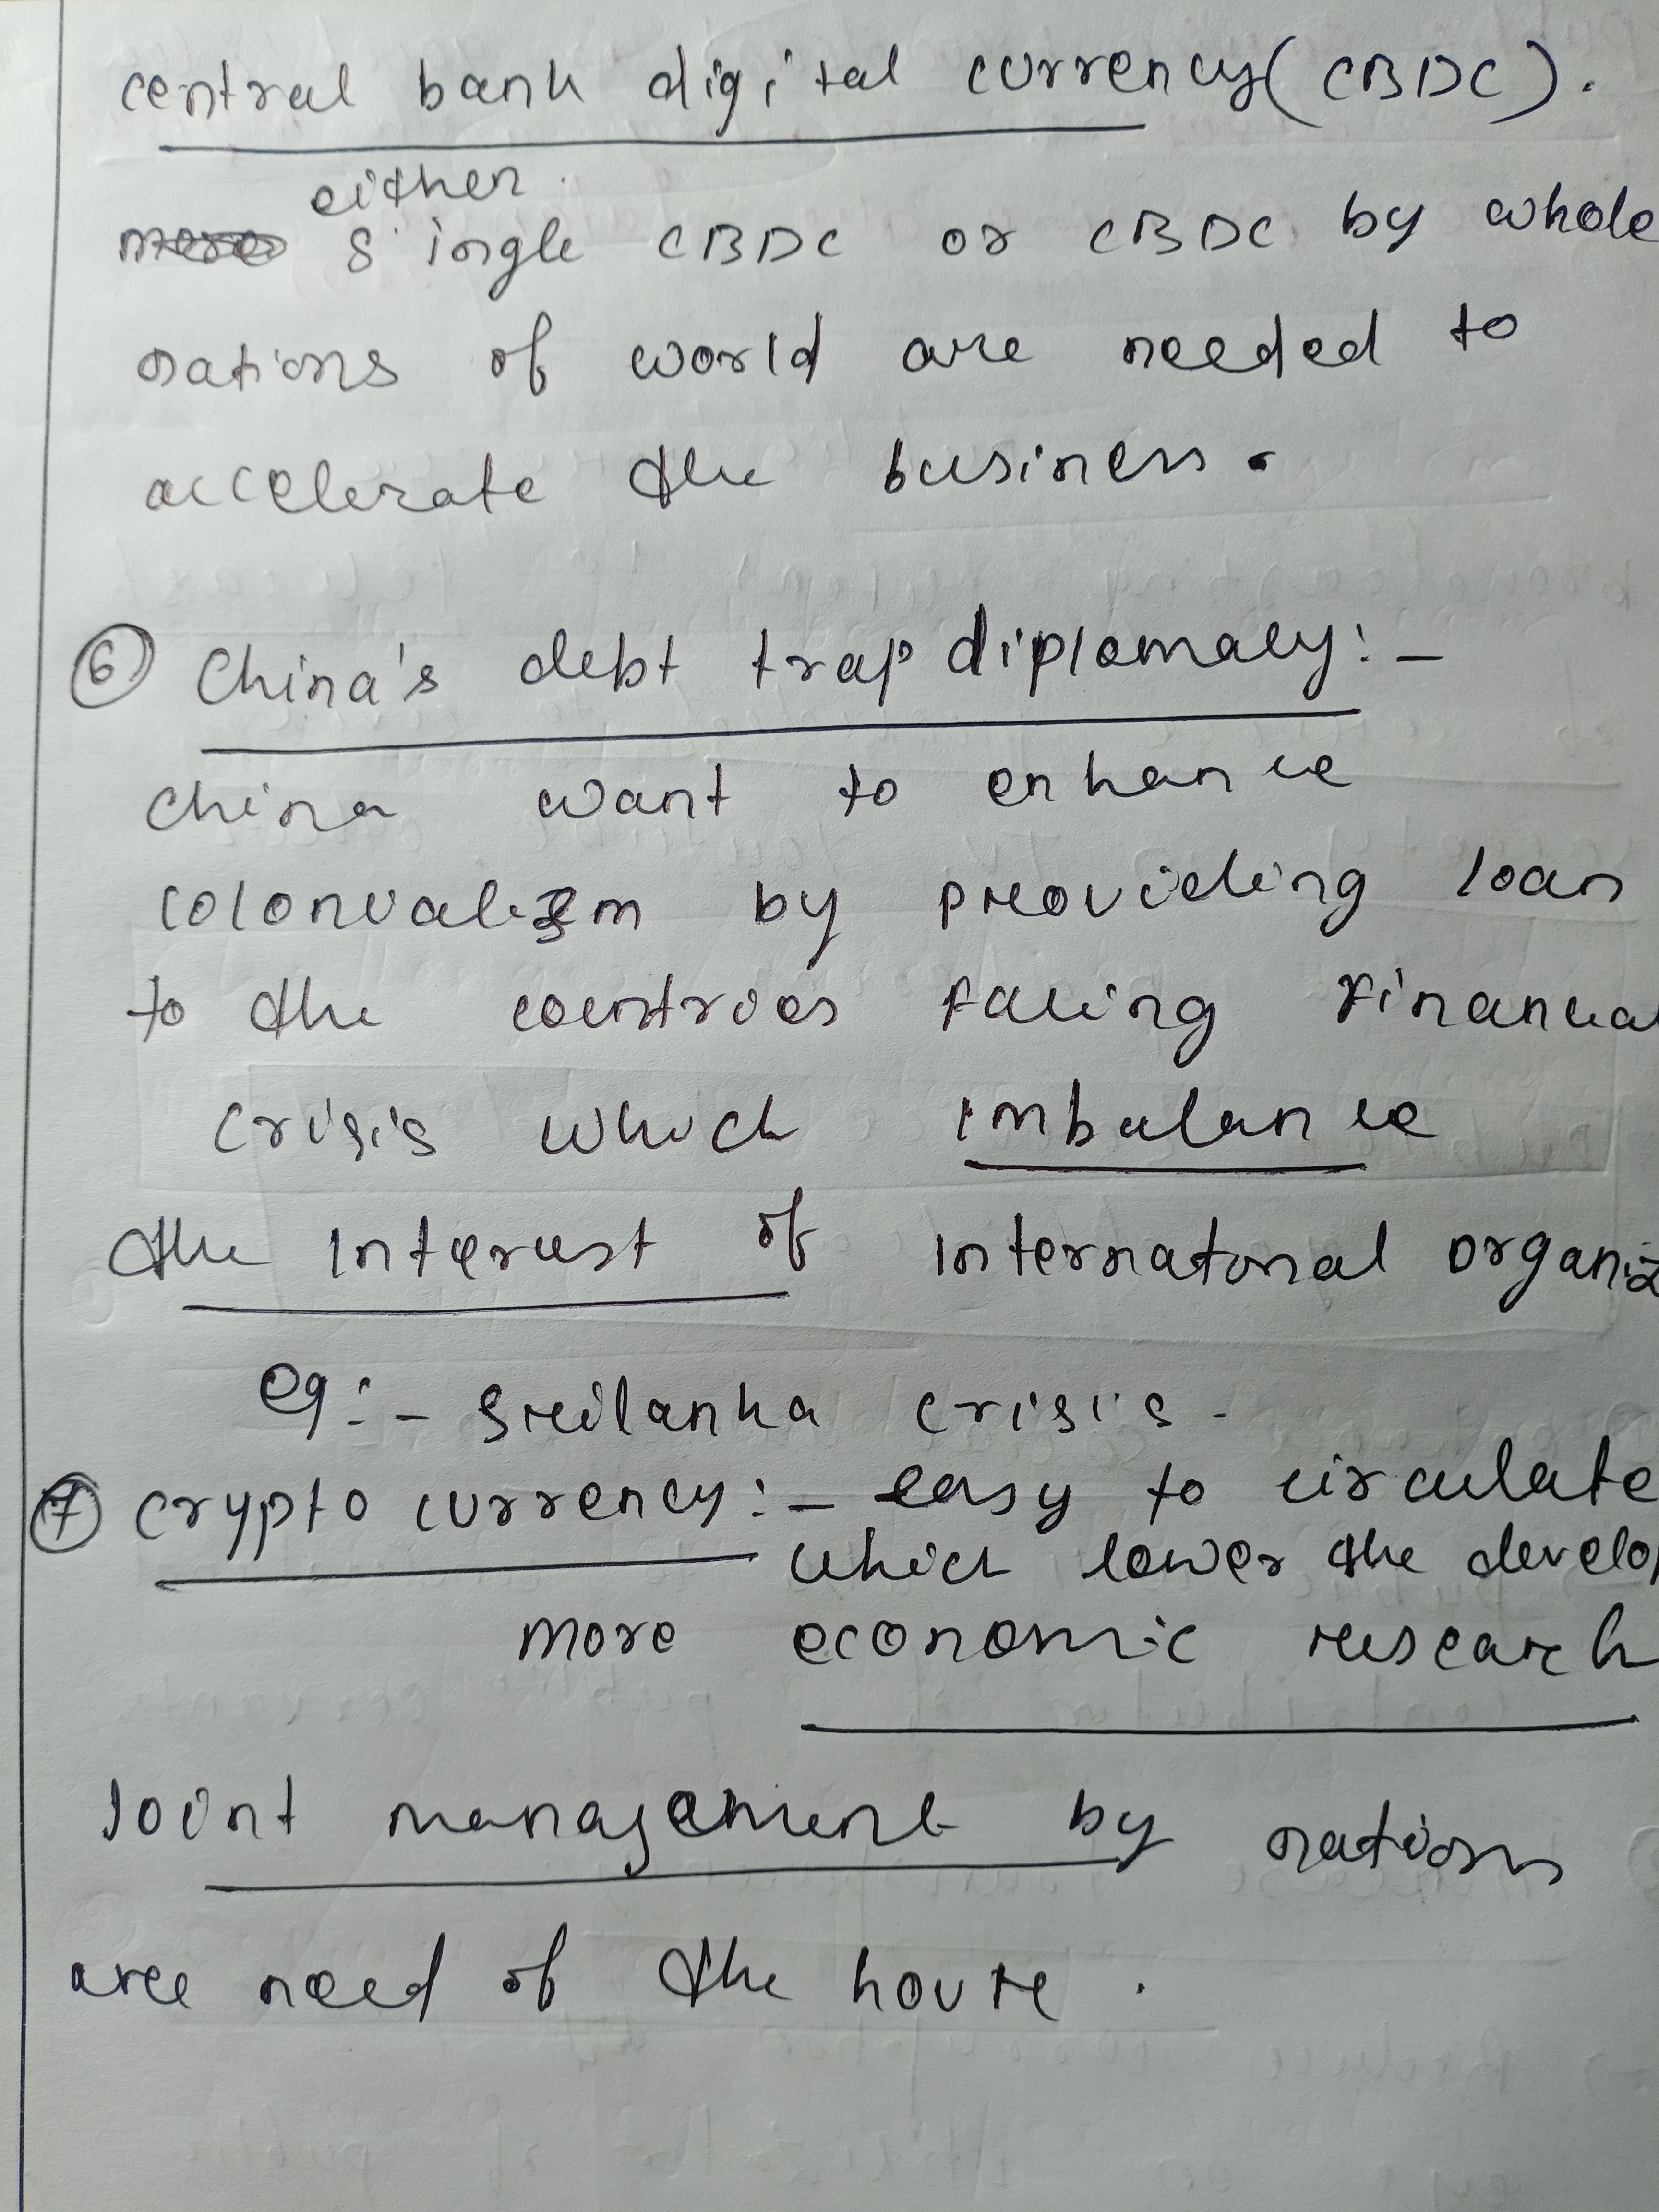 central bank digital currency (CBDC).
either
single CBDC or CBDC by whole
nations of world are needed to
accelerate the business.
⑥ China's debt trap diplomacy:-
china want to enhance
colonialism by providing loan
to the countries facing financial
crisis which imbalance
the interest of internatonal organiz
eg:- Srilanka crisis.
⑦ crypto currency:- easy to circulate
which lower the develop
more economic research
Joint management by nations
are need of the houre.